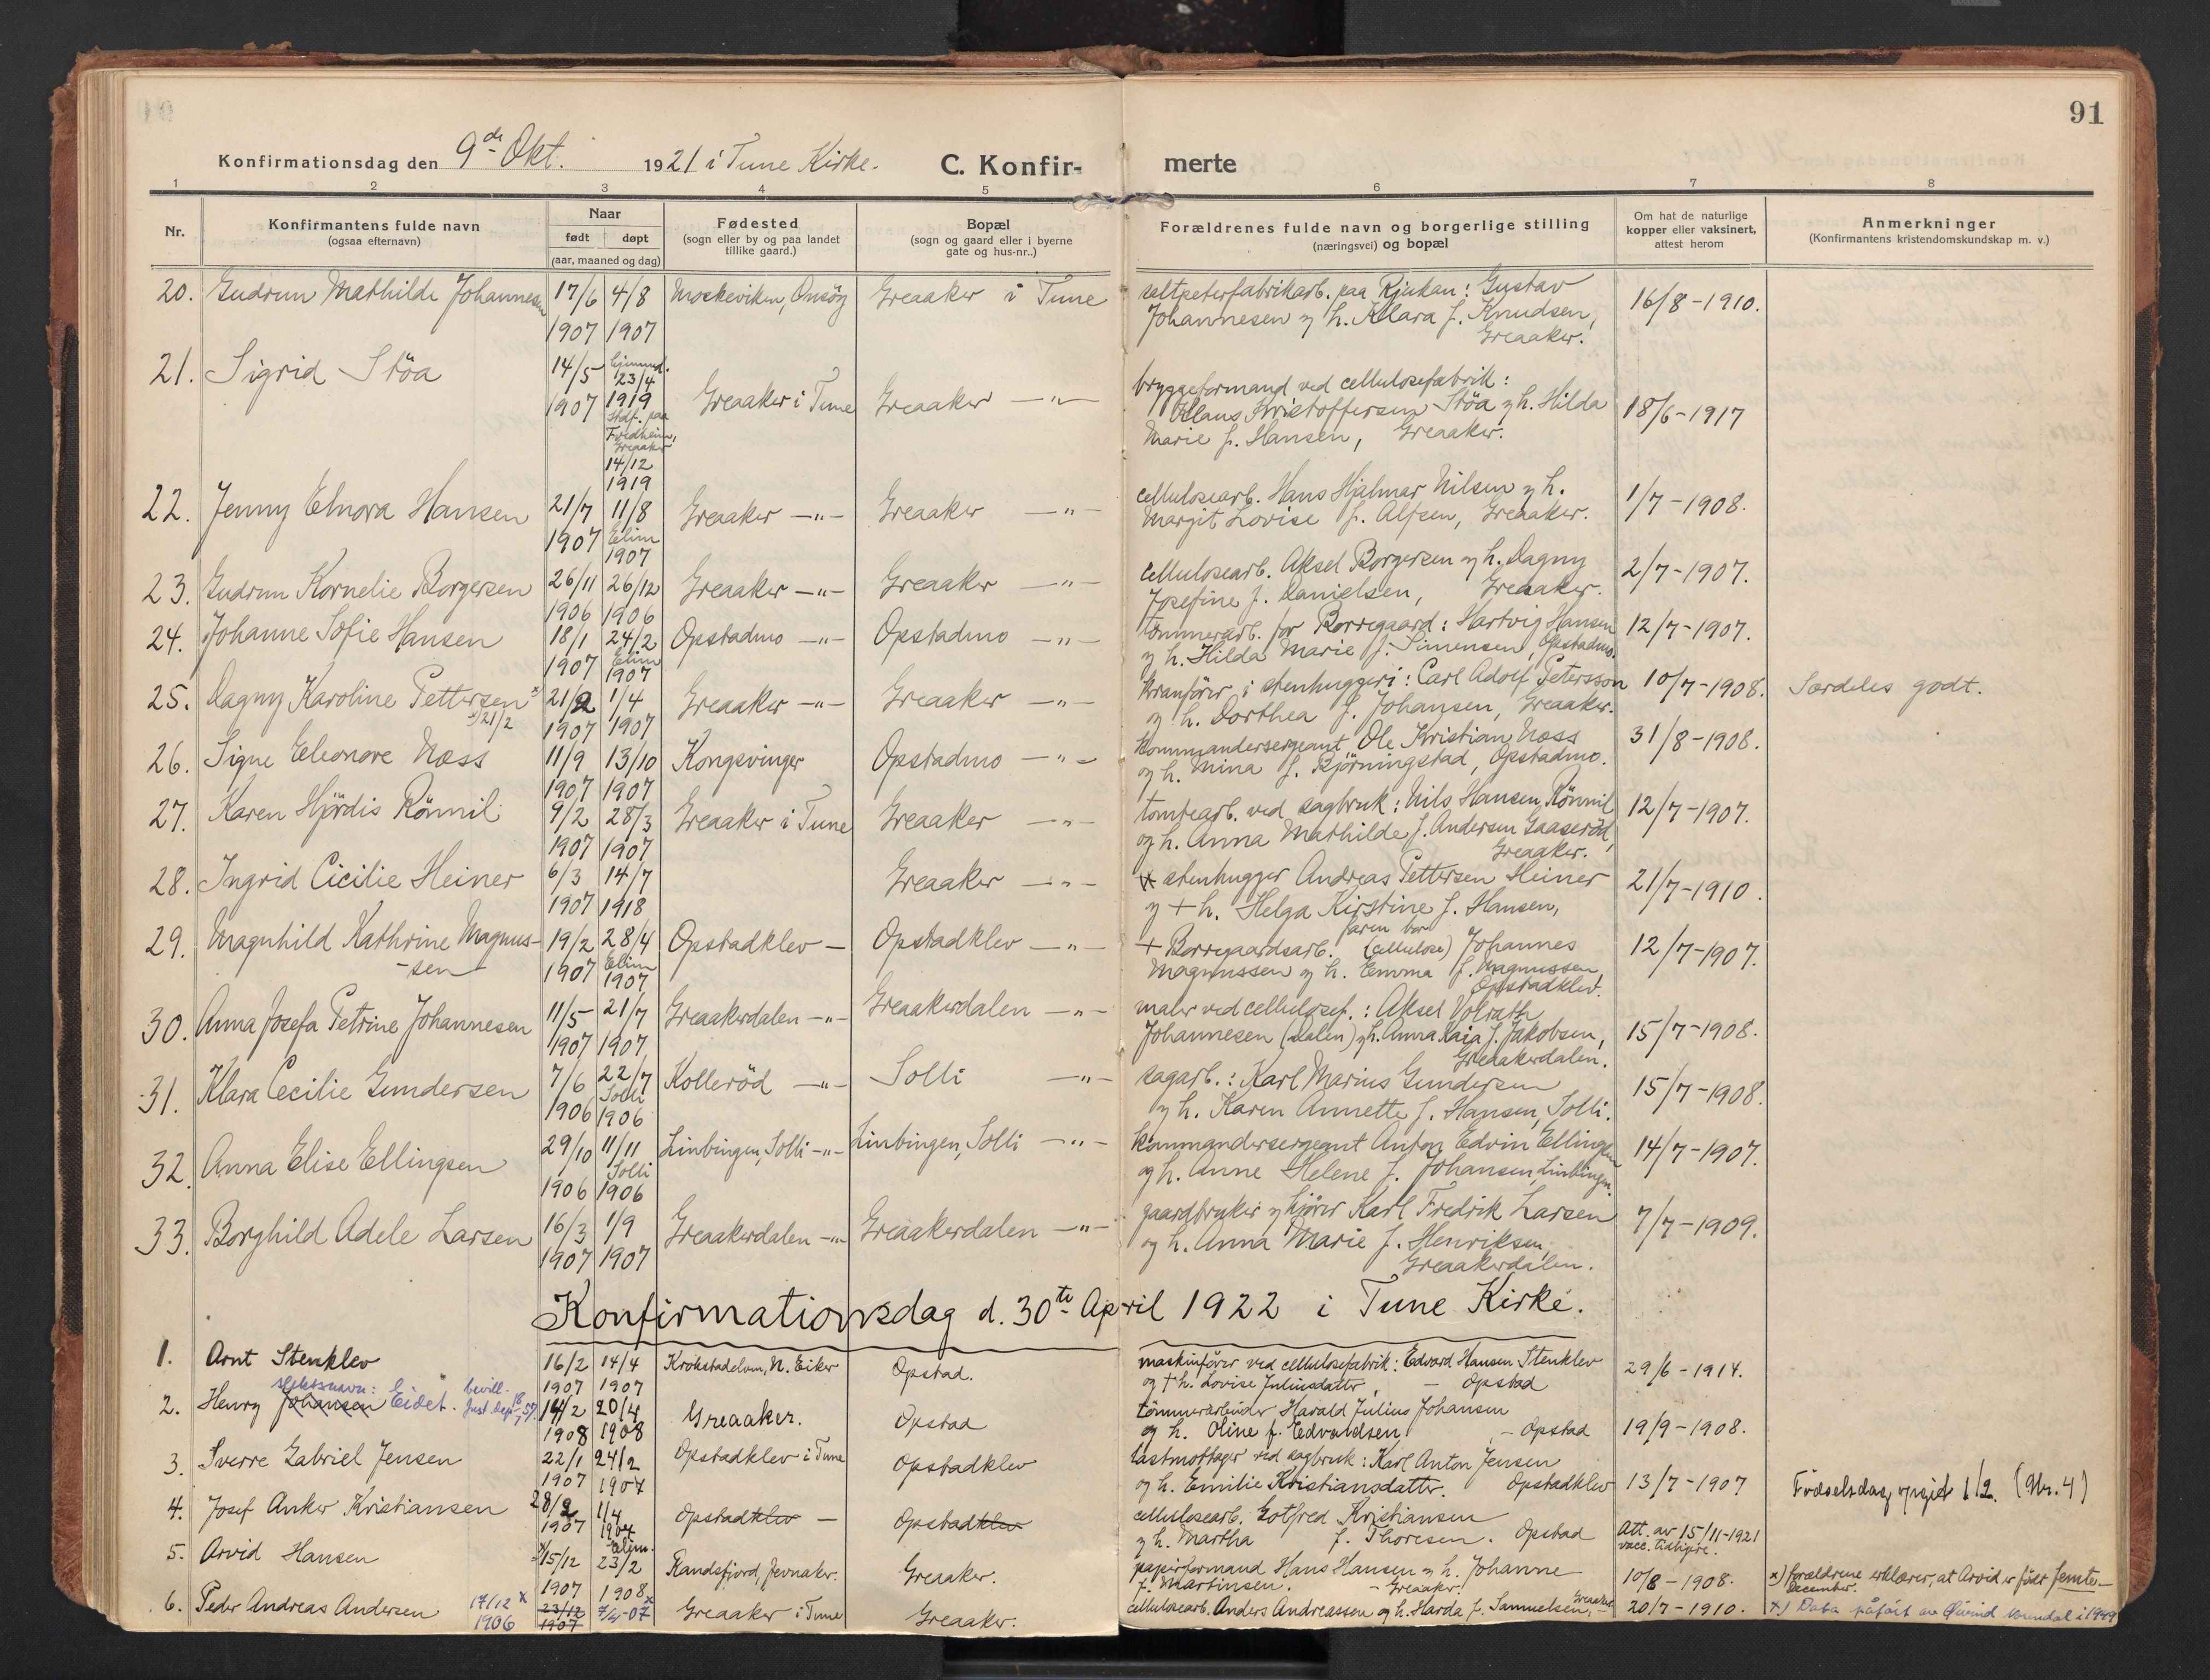 91
Konfirmationsdag den 9de Okt. 1921 i Tune Kirke. C. Konfir- merte
1 2 3 4 5 6 7 8
Nr. Konfirmantens fulde navn (ogsaa efternavn) Naar født døpt (aar, maaned og dag) Fødested (sogn eller by og paa landet tillike gaard.) Bopæl (sogn og gaard eller i byerne gate og hus-nr..) Forældrenes fulde navn og borgerlige stilling (næringsvei) og bopæl Om hat de naturlige kopper eller vaksinert, attest herom Anmerkninger (Konfirmantens kristendomskundskap m. v.)
20. Gudrun Mathilde Johannesen 17/6 4/8 Moskeviken, Onsöy Greaaker i Tune saltpeterfabrikarb. paa Rjukan: Gustav 16/8-1910.
1907 1907 Johannesen og h. Klara f. Knudsen,
Greaaker.
21. Sigrid Stöa 14/5 hjemmed. 23/4
1907 1919 Greaaker i Tune Greaaker —"— bryggeformand ved cellulosefabrik:
Stdf. paa Klaus Kristoffersen Stöa og h. Hilda 18/6-1917
Fredheim, Marie f. Hansen, Greaaker.
Greaaker
14/12
1919
22. Jenny Elnora Hansen 21/7 11/8 Greaaker —"— Greaaker —"— cellulosearb. Hans Hjalmar Nilsen og h. 1/7-1908.
1907 Elim Margit Lovise f. Alfsen, Greaaker.
1907
23. Gudrun Kornelie Borgersen 26/11 26/12 Greaaker —"— Greaaker —"— cellulosearb. Aksel Borgersen og h. Dagny 2/7-1907.
1906 1906 Josefine f. Danielsen, Greaaker.
24. Johanne Sofie Hansen 18/1 24/2 Opstadmo —"— Opstadmo —"— tömmerarb. for Borregaard: Hartvig Hansen 12/7-1907.
1907 Elim og h. Hilda Marie f. Simensen, Opstadmo.
1907
25. Dagny Karoline Pettersen x 21/2 1/4 Greaaker —"— Greaaker —"— kranförer i stenhuggeri: Carl Adolf Petersson 10/7-1908. Særdeles godt.
x) 21/2 1907 1907 og h. Dorthea f. Johansen, Greaaker.
26. Signe Eleonore Næss 11/9 13/10 Kongsvinger Opstadmo —"— kommandersergeant Ole Kristian Næss 31/8-1908.
1907 1907 og h. Mina f. Bjørningstad, Opstadmo.
27. Karen Hjördis Rönnil 9/2 28/3 Greaaker i Tune Greaaker —"— tomtearb. ved sagbruk: Nils Hansen Rönnil 12/7-1907.
1907 1907 og h. Anna Mathilde f. Andersen Gaaseröd,
Greaaker.
28. Ingrid Cicilie Heiner 6/3 14/7 Greaaker —"— stenhugger Andreas Pettersen Heiner 21/7-1910.
1907 1918 og + h. Helga Kirstine f. Hansen,
faren bor
29. Magnhild Kathrine Magnus- 19/2 28/4 Opstadklev — Opstadklev —"— + Borregaardsarb. (cellulose) Johannes 12/7-1907.
-sen 1907 Elim Magnussen og h. Emma f. Magnussen,
1907 Opstadklev.
30. Anna Josefa Petrine Johannesen 11/5 21/7 Greaakerdalen —"— Greaakerdalen —"— maler ved cellulosef.: Aksel Volrath
1907 1907 Johannesen (Dalen) og h. Anna Kaia f. Jakobsen, 15/7-1908.
Greaakerdalen.
31. Klara Cecilie Gundersen 7/6 22/7 Kolleröd —"— Solli —"— sagarb.: Karl Marius Gundersen 15/7-1908.
Solli
1906 1906 og h. Karen Annette f. Hansen, Solli.
32. Anna Elise Ellingsen 29/10 11/11 Linbingen, Solli —"— Linbingen, Solli —"— kommandersergeant Anton Edvin Ellingsen 14/7-1907.
Solli
1906 1906 og h. Anne Helene f. Johansen, Linbingen.
33. Borghild Adele Larsen 16/3 1/9 Greaakerdalen —"— Greaakerdalen —"— gaardbruker og kjörer Karl Fredrik Larsen 7/7-1909.
1907 1907 og h. Anna Marie f. Henriksen,
Greaakerdalen.
Konfirmationsdag d. 30te April 1922 i Tune Kirke.
1. Arnt Stenklev 16/2 14/4 Krokstadelven, N. Eiker Opstad. maskinfører ved cellulosefabrik: Edvard Hansen Stenklev 29/6-1914.
1907 1907 og + h. Lovise Juliusdatter, — Opstad
slektsnavn: bevill.
2. Henry Johansen Eidet. Just. dep. 14/2 20/4 Greaaker. Opstad tömmerarbeider Harald Julius Johansen
1908 1908 og h. Oline f. Edvaldsen, — Opstad 19/9-1908.
3. Sverre Gabriel Jensen 22/1 24/2 Opstadklev i Tune Opstadklev lastmottager ved sagbruk: Karl Anton Jensen
1907 1907 og h. Emilie Kristiansdatter. Opstadklev 13/7-1907 Födselsdag opgit 1/2. (Nr. 4)
4. Josef Anker Kristiansen 28/2 1/4 Opstadklev — Opstadklev cellulosearb. Gotfred Kristiansen
1907 1907 og h. Martha f. Thoresen. Opstad Att. av 15/11-1921
Elim. vacc. tidligere.
5. Arvid Hansen x) 15/12 23/2 Randsfjord, Jevnaker. Greaaker. papirformand Hans Hansen og h. Johanne
1907 1908 f. Martinsen. — Greaaker. 10/8-1908. x) Forældrene erklærer, at Arvid er födt femte- December.
6. Peder Andreas Andersen 17/12 x 23/12 7/4-07 x Greaaker i Tune Greaaker. cellulosearb. Anders Andreassen og h. Harda f. Samuelsen, Greaaker. 20/7-1910. x) Data påført av Øivind i 1949
1906 1907